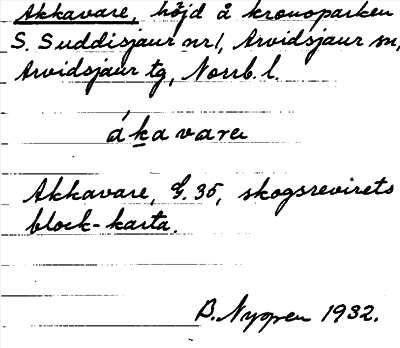 Akkavare, höjd å kronoparken
S. Suddisjaur nr 1, Arvidsjaur sn,
Arvidsjaur tg, Norrb. l.
ákavarε
Akkavare, G. 35, skogsrevirets
block-karta.
B. Nygren 1932.